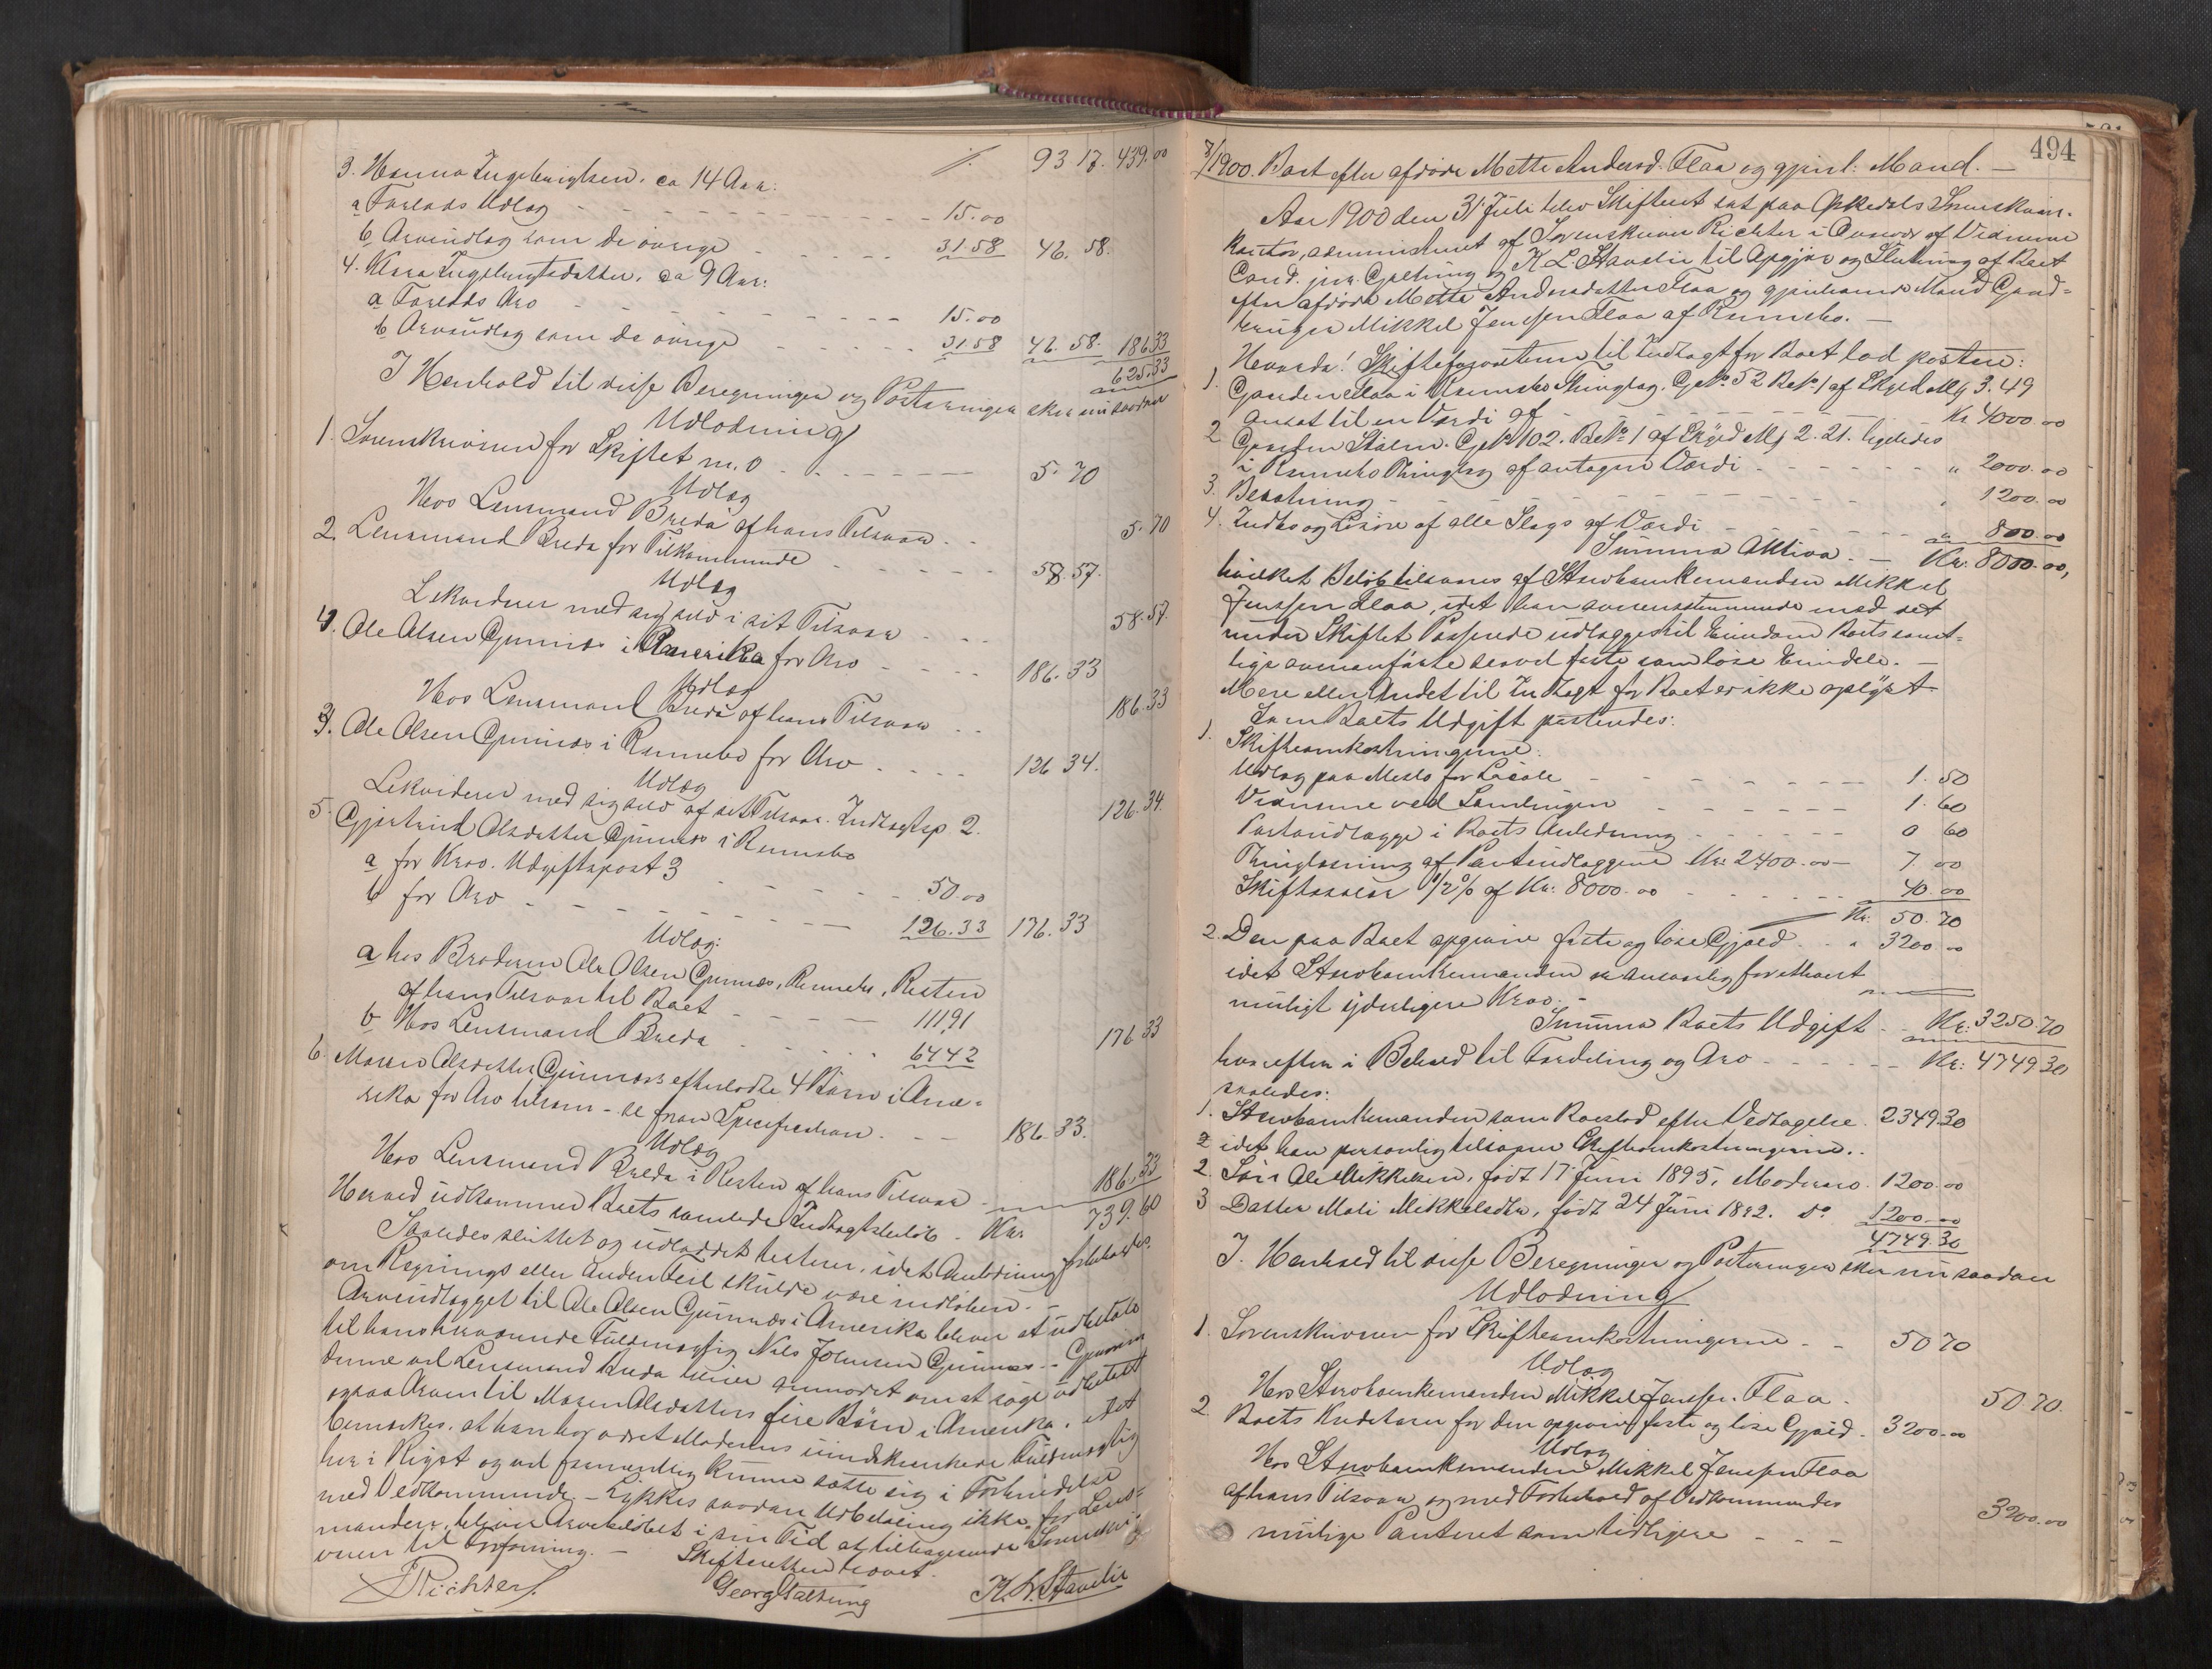 ÷ 93 17. 439.00
3. Hanna Ingebrigtsen. ca 14 Aar:
a Forlods Udlæg - - - 15.00
b Arvudlæg som de øvrige - - 31 58 46. 58.
4. Klara Ingebrigtsdatter, ca 9 Aar:
a Forlods Arv - - - 15.00
b Arvudlæg som de øvrige - - - 31 58 46. 58. 186 33
625.33
I Henhold til disse Beregninger og Posteringer sker nu saadan
Udlodning
1. Sorenskriveren for Skiftet m. v. - - - 5. 70
Udlæg
Hos Lensmand Breda af hans Tilsvar - - 5. 70
2. Lensmand Breda for Tilkommende - - - 58. 57.
Udlæg
Lekviderer med sig selv i sit Tilsvar - - - 58. 57.
4. Ole Olsen Gunnes i Amerika for Arv - - - 186. 33
Udlæg
Hos Lensmand Breda af hans Tilsvar - - 186. 33
3. Ole Olsen Gunnes i Rennebo for Arv - - - 126 34.
Udlæg
Lekviderer med sig selv af sit Tilsvar. Indtægtsp 2. 126. 34.
5. Gjertrud Olsdatter Gunnes i Rennebo
a for Krav. Udgiftspost 3 - - - 50.00
b for Arv - - - 126.33 176. 33
Udlæg:
a hos Broderen Ole Olsen Gunnes, Rennebo, Resten
af hans Tilsvar til Boet - - - 111 91
b Hos Lensmand Breda - - - 64 42 176 33
6. Maren Olsdatter Gunnes's efterladte 4 Børn i Ame-
rika for Arv tilsam - se foran Specifikation. - - 186. 33.
Udlæg
Hos Lensmand Breda i Resten af hans Tilsvar - 186. 33
Herved udkommer Boets samlede Indtægtsbeløb - Kr. 739. 60
Saaledes sluttet og udloddet testerer, idet Anledning forbeholdes
om Regnings eller anden Feil skulde være indløben. -
Arvudlægget til Ole Olsen Gunnes i Amerika bliver at udbetale
til hans herværende Fuldmægtig Nils Johnsen Gunnes - Gjennem
denne vil Lensmand Breda blive anmodet om at søge udbetalt
ogsaa Arven til Maren Olsdatters fire Børn i Amerika, idet
bemærkes, at han har været Moderens Fuldmægtig
her i Riget og vel fremdeles kunne sætte sig i Forbindelse
med Vedkommende. - Lykkes saadan Udbetaling ikke, for Lens-
manden, bliver Arvebeløbet i sin Tid at tilbagesende Sorenskri-
veren til Forføining. -
Skifteretten hævet.
Richter. Georg Galtung K. L. Stavlie
494
31/7 1900. Boet efter afdøde Mette Andersd. Flaa og gjenl. Mand. -
Aar 1900 den 31 Juli blev Skifteret sat paa Orkedals Sorenskriver-
kontor, administreret af Sorenskriver Richter i Overvær af Vidnerne
Cand. jur. Galtung og K. L. Stavlie til Opgjør og Slutning af Boet
efter afdøde Mette Andersdatter Flaa og gjenlevende Mand Gaard-
bruger Mikkel Jenssen Flaa af Rennebo. -
Hvorda! Skifteforvalteren til Indtægt for Boet lod postere:
1. Gaarden Flaa i Rennebo Thinglag. G.No. 52 B.No. 1 af Skyld Mk. 3.49
ansat til en Værdi af - - - Kr 4000.00
2 Gaarden Stølen. G.No. 102. B.No. 1 af Skyld Mk 2. 21. ligeledes
i Rennebo Thinglag af antagen Værdi - - - " 2000.00
3. Besætning - - - " 1200.00
4. Indbo og Løsøre af alle Slags af Værdi - - - " 800.00
Summa Aktiva. - Kr. 8000.00,
hvilket Beløb tilsvares af Stervboenkemanden Mikkel
Jenssen Flaa, idet han overensstemmende med det
under Skiftet Passerede udlægges til Eiendom Boets samt-
lige ovenanførte saavel faste som løse Eiendele. -
Mere eller Andet til Indtægt for Boet er ikke oplyst
Som Boets Udgift posteredes:
1. Skifteomkostningerne:
Udlæg paa Meslo for Locale - - - 1. 50
Vidnerne ved Samlingen - - - 1. 60
Portoudlægge i Boets Anledning - - - 0 60
Thinglæsning af Pantudlæggene Kr. 2400.00 - 7. 00
Skifteskriver 1/2 % af Kr. 8000.00 - - - 40.00
Kr. 50. 70
2. Den paa Boet opgivne faste og løse Gjæld - " 3200 00
idet Stervboenkemanden er ansvarlig for ethvert
muligt yderligere Krav. -
Summa Boets Udgift - Kr. 3250.70
hvorefter i Behold til Fordeling og Arv - - - Kr: 4749 30
saaledes:
1. Stervboenkemanden som Boeslod efter Vedtagelse. 2349.30
idet han personlig tilsvarer Skifteomkostningerne. -
2. Søn Ole Mikkelsen, født 17 Juni 1895, Modrearv. 1200.00
3 Datter Mali Mikkelsdtr, født 24 Juni 1892. do. 1200.00
4749.30
I Henhold til disse Beregninger og Posteringer sker nu saadan
Udlodning
1. Sorenskriveren for Skifteomkostningerne - - 50 70
Udlæg
Hos Stervboenkemanden Mikkel Jenssen Flaa - 50. 70.
2. Boets Kreditorer for den opgivne faste og løse Gjæld - 3200.00
Udlæg
Hos Stervboenkemanden Mikkel Jenssen Flaa
af hans Tilsvar og med Forbehold af Vedkommendes
mulige Panteret som tidligere - - - 3200.00